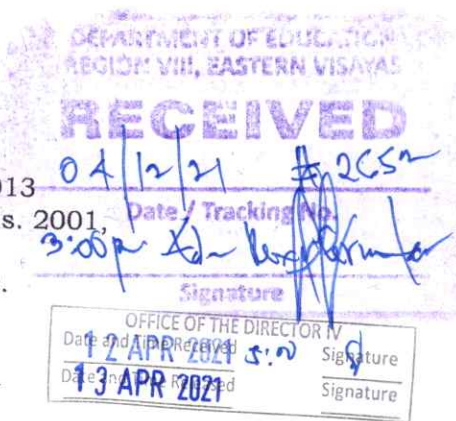 DEPARTMENT OF EDUCATION
REGION VIII, EASTERN VISAYAS
RECEIVED
013
04/12/21 # 2652
s. 2001,
Date / Tracking No.
3:00p
Signature
OFFICE OF THE DIRECTOR IV
Date and Time Received 12 APR 2021 5:00 Signature
Date and Time Released 13 APR 2021 Signature